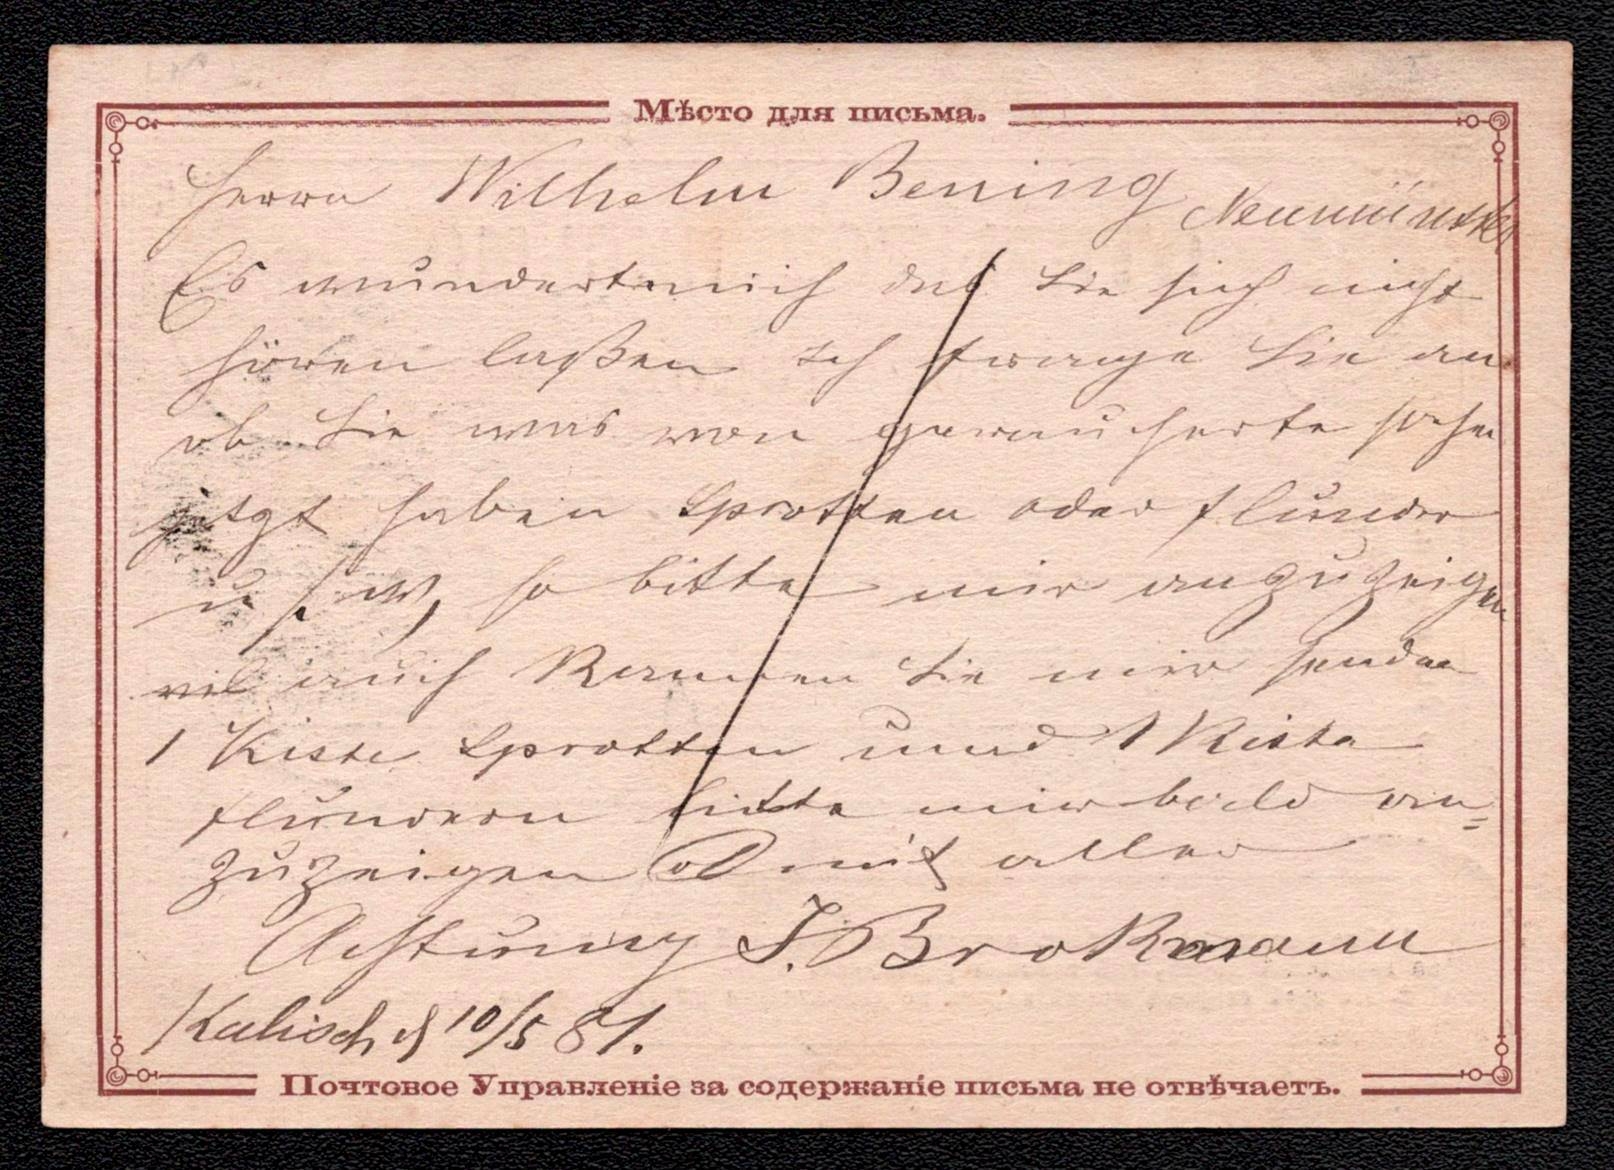 Мѣсто для письма.
Herrn Wilhelm Bening Neumünster
Es wundert mich das Sie sich nicht
hören laßen ich frage Sie an
ob Sie was von geraucherte sachen
jetzt haben Sprotten oder flunder
u s. w, so bitte mir anzuzeigen
auch Kannen Sie mir senden
1 Kiste Sprotten und 1 Kiste
flundern bitte mir bald an=
zuzeigen mit aller
Achtung J. Brokmann
Kalisch d 10/5 81.
Почтовое Управленіе за содержаніе письма не отвѣчаетъ.